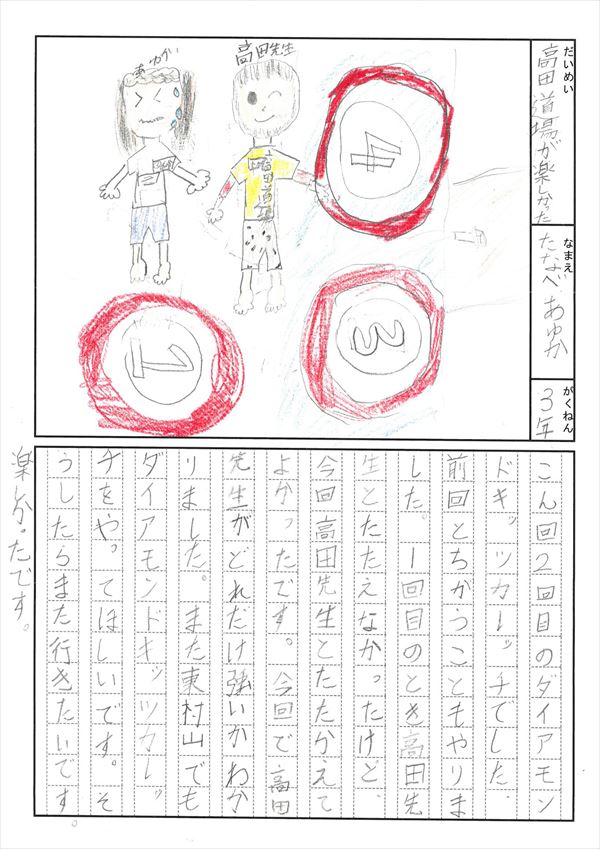 だいめい
高田道場が楽しかった
なまえ
たなべあゆか
がくねん
3年
あゆか
高田先生
高田道場
4
3
1
こん回2回目のダイアモン
ドキッツカレッチでした。
前回とちがうこともやりま
した。1回目のとき高田先
生とたたえなかったけど、
今回高田先生とたたかえて
よかったです。今回で高田
先生がどれだけ強いかわか
りました。また東村山でも
ダイアモンドキッツカレッ
チをやってほしいです。そ
うしたらまた行きたいです。
楽しかったです。